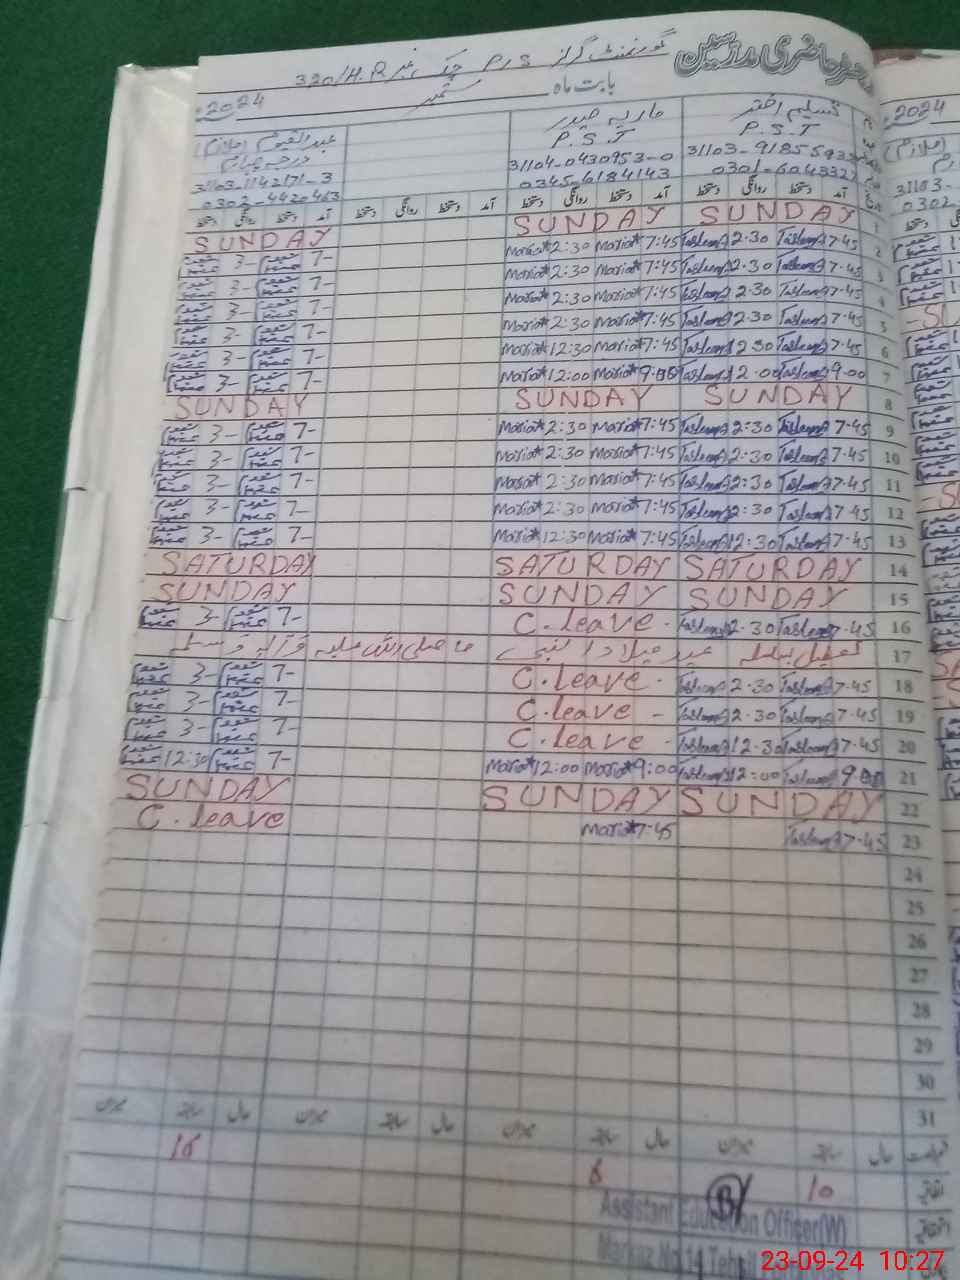 رجسٹر حاضری مدرسین
گورنمنٹ گرلز P/S چک نمبر 320/H.R
بابت ماہ ستمبر 2024
تسلیم اختر ماریہ حیدر عبدالقیوم (ملازم)
P.S.T P.S.T درجہ چہارم
31104-0430953-0 31103-1142171-3
0301-6043327 0345-6184143 0302-4420463
آمد دستخط روانگی دستخط آمد دستخط روانگی دستخط آمد دستخط روانگی دستخط آمد دستخط روانگی دستخط
1 SUNDAY SUNDAY SUNDAY
2 7-45 Tasleem 2.30 7:45 Maria 2:30 7- 3-
3 7-45 Tasleem 2.30 7:45 Maria 2:30 7- 3-
4 7-45 Tasleem 2.30 7:45 Maria 2:30 7- 3-
5 7-45 Tasleem 2.30 7:45 Maria 2:30 7- 3-
6 7-45 Tasleem 12.30 7:45 Maria 12:30 7- 3-
7 9.00 Tasleem 12.00 9:00 Maria 12:00 7- 3-
8 SUNDAY SUNDAY SUNDAY
9 7-45 Tasleem 2:30 7:45 Maria 2:30 7- 3-
10 7-45 Tasleem 2:30 7:45 Maria 2:30 7- 3-
11 7-45 Tasleem 2:30 7:45 Maria 2:30 7- 3-
12 7-45 Tasleem 2:30 7:45 Maria 2:30 7- 3-
13 7-45 Tasleem 12:30 7:45 Maria 12:30 7- 3-
14 SATURDAY SATURDAY SATURDAY
15 SUNDAY SUNDAY SUNDAY
16 7-45 Tasleem 2.30 C.leave 7- 3-
17 تعطیل بسلسلہ عید میلاد النبی
18 7-45 Tasleem 2.30 C.leave 7- 3-
19 7-45 Tasleem 2.30 C.leave 7- 3-
20 7-45 Tasleem 12.30 C.leave 7- 3-
21 9.00 Tasleem 12:00 9:00 Maria 12:00 7- 12:30
22 SUNDAY SUNDAY SUNDAY
23 7-45 Tasleem 7:45 Maria C.leave
24
25
26
27
28
29
30
31
حال سابقہ میزان حال سابقہ میزان حال سابقہ میزان حال سابقہ میزان
10 8
Assistant Education Officer(W)
Markaz No.14 Tehsil
2024
23-09-24 10:27